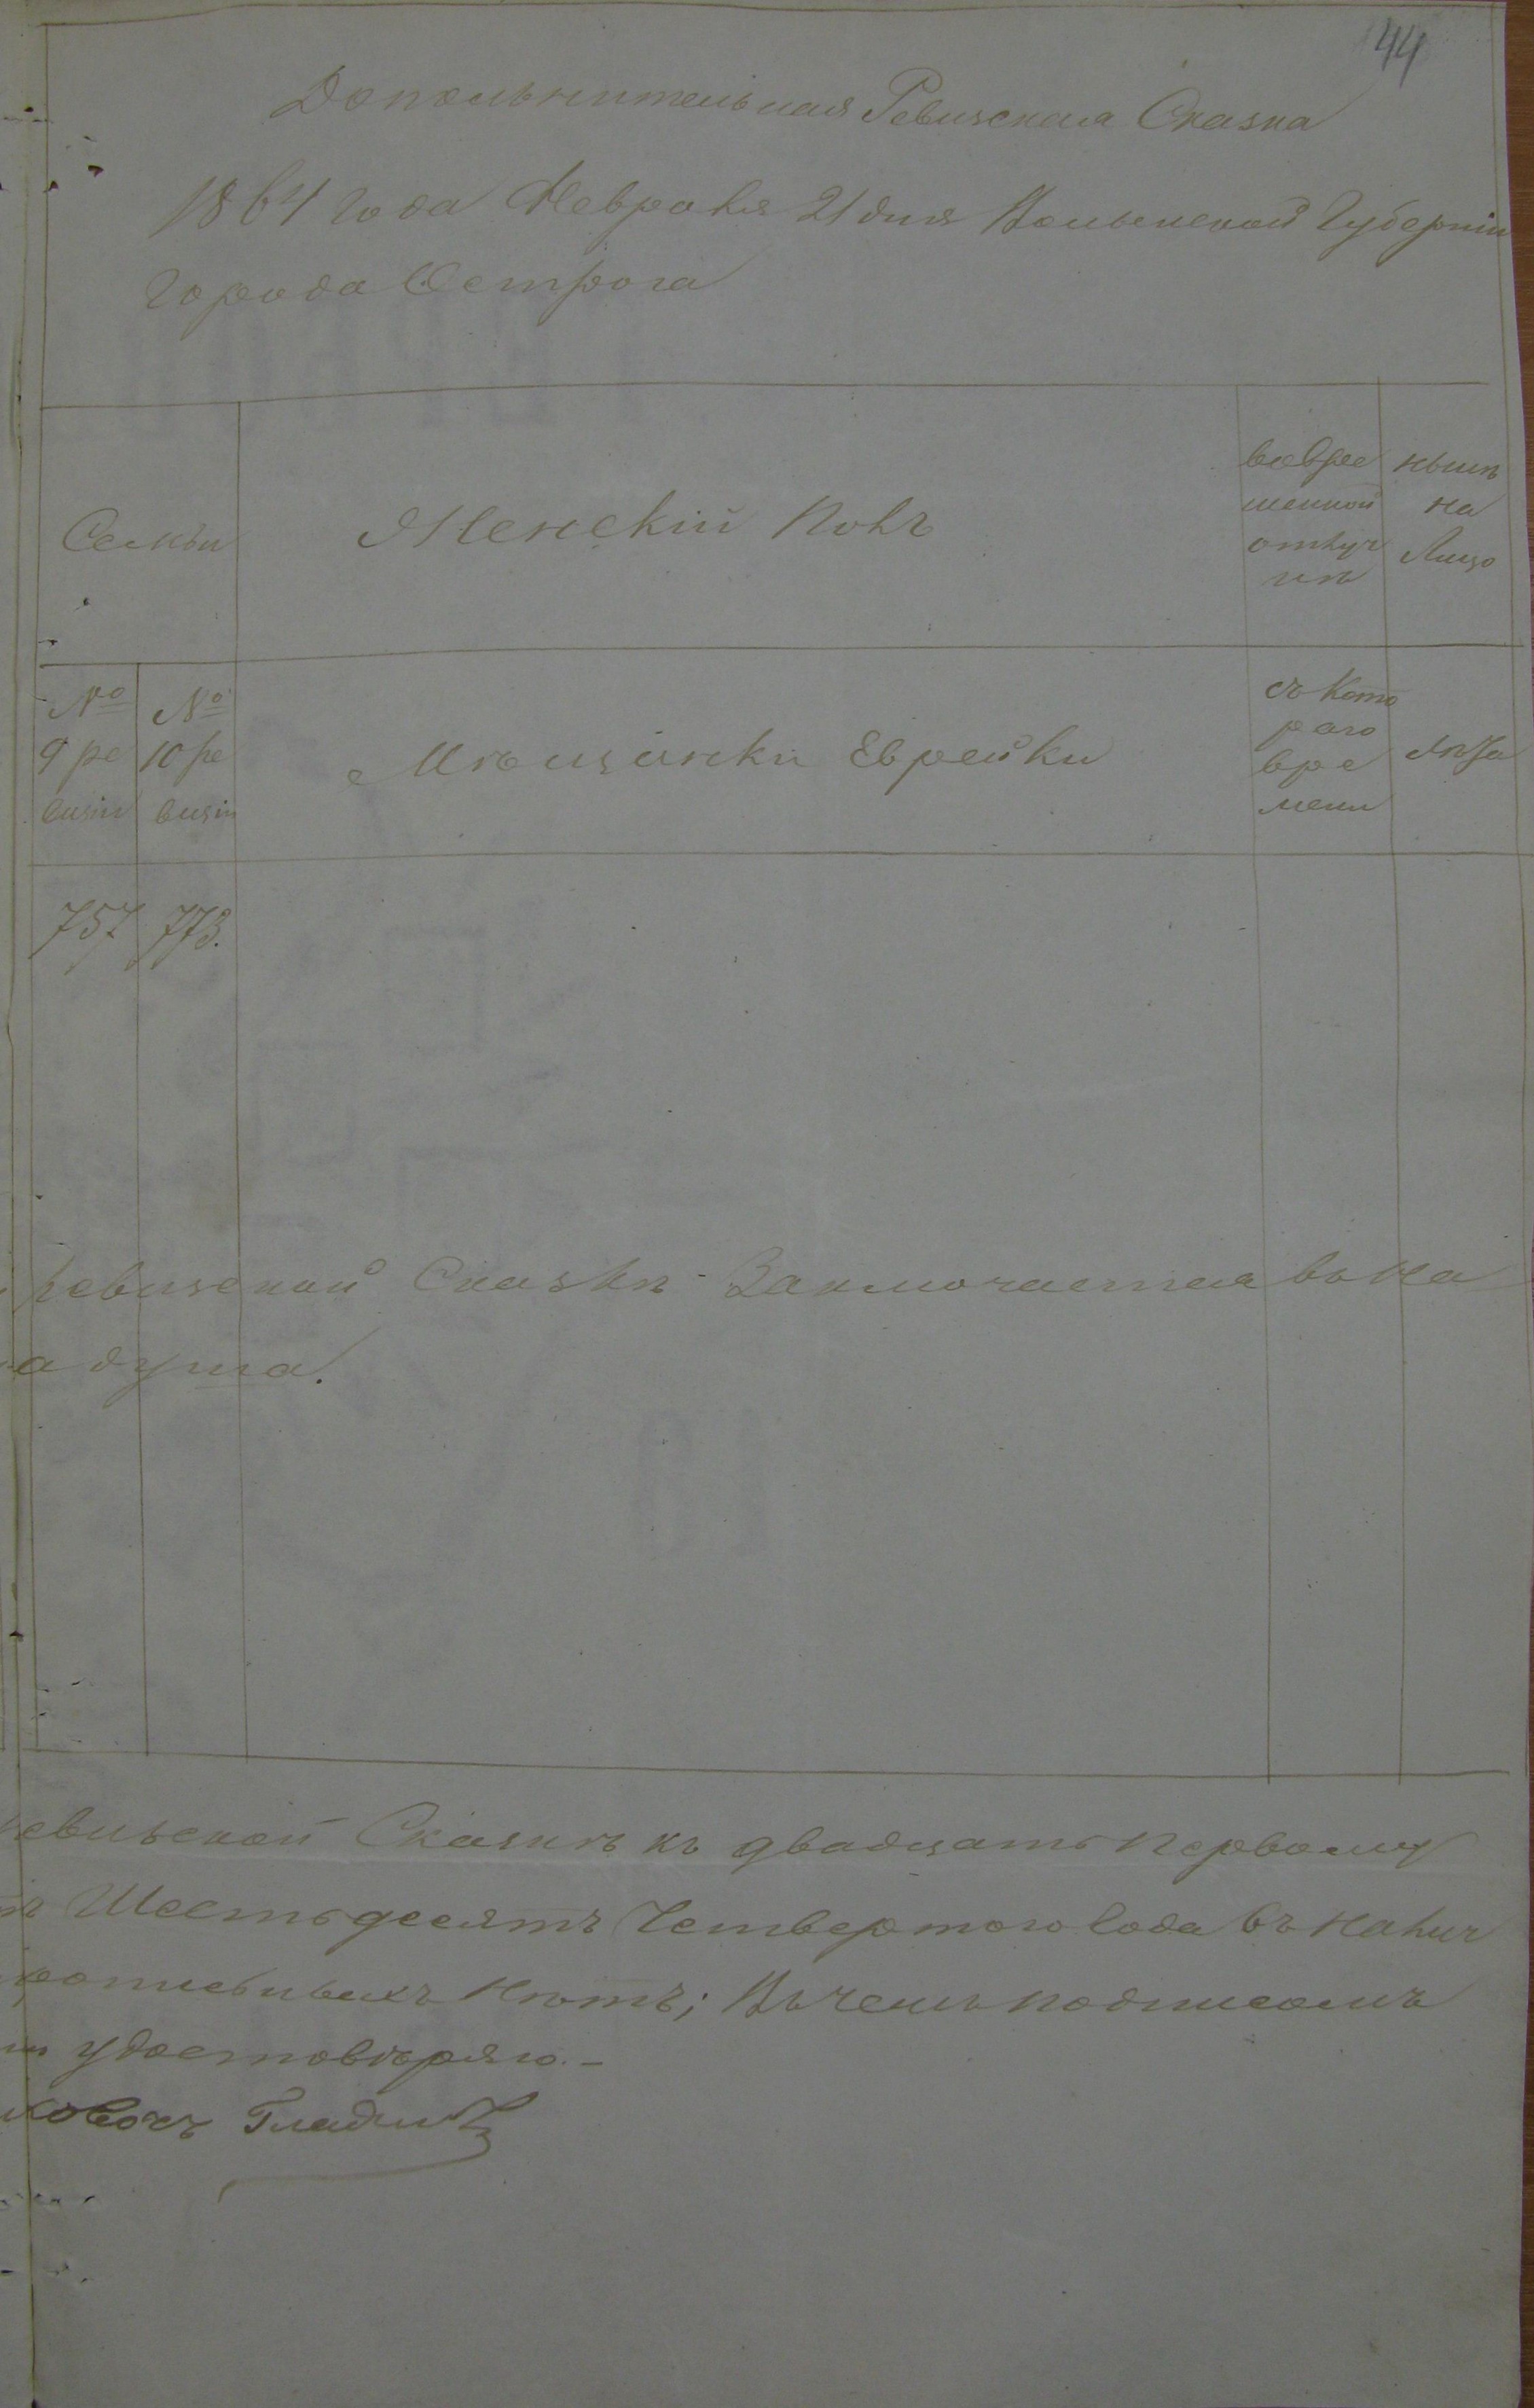 44
Дополнительная Ревизская Сказка
1864 года Февраля 21 дня Волынской Губернiи
города Острога
Семьи
Женскiй полъ
во вре
менной
отлуч
кѣ
нынѣ
на
Лицо
№
9 ре
визiи
№
10 ре
визiи
Мѣщанки Еврейки
съ кото
раго
вре
мени
лѣта
757 773.
ревизской Сказкѣ Заключается въ на
а душа.
евизской Сказкѣ къ двадцать первому
ъ Шестьдесятъ Четвертого года въ налич
нѣтъ; Въ чемъ подписомъ
удостовѣряю.-